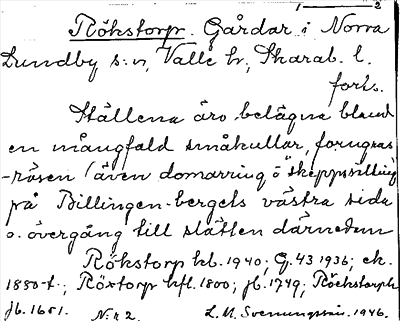 1 2
Rökstorp. Gårdar i Norra
Lundby s:n, Valle hr, Skarab. l.
forts.
Ställena äro belägna bland
en mångfald småkullar, forngrav
-rösen (även domarring o "skeppssättning
på Billingen-bergets västra sida
o. övergång till slätten därnedan
Rökstorp kb. 1940; G. 43 1936; ek.
1880-t.; Röxtorp hfl. 1800; jb. 1749; Röckstorph
jb. 1651. N:r 2. L. M. Svenungsson. 1946.